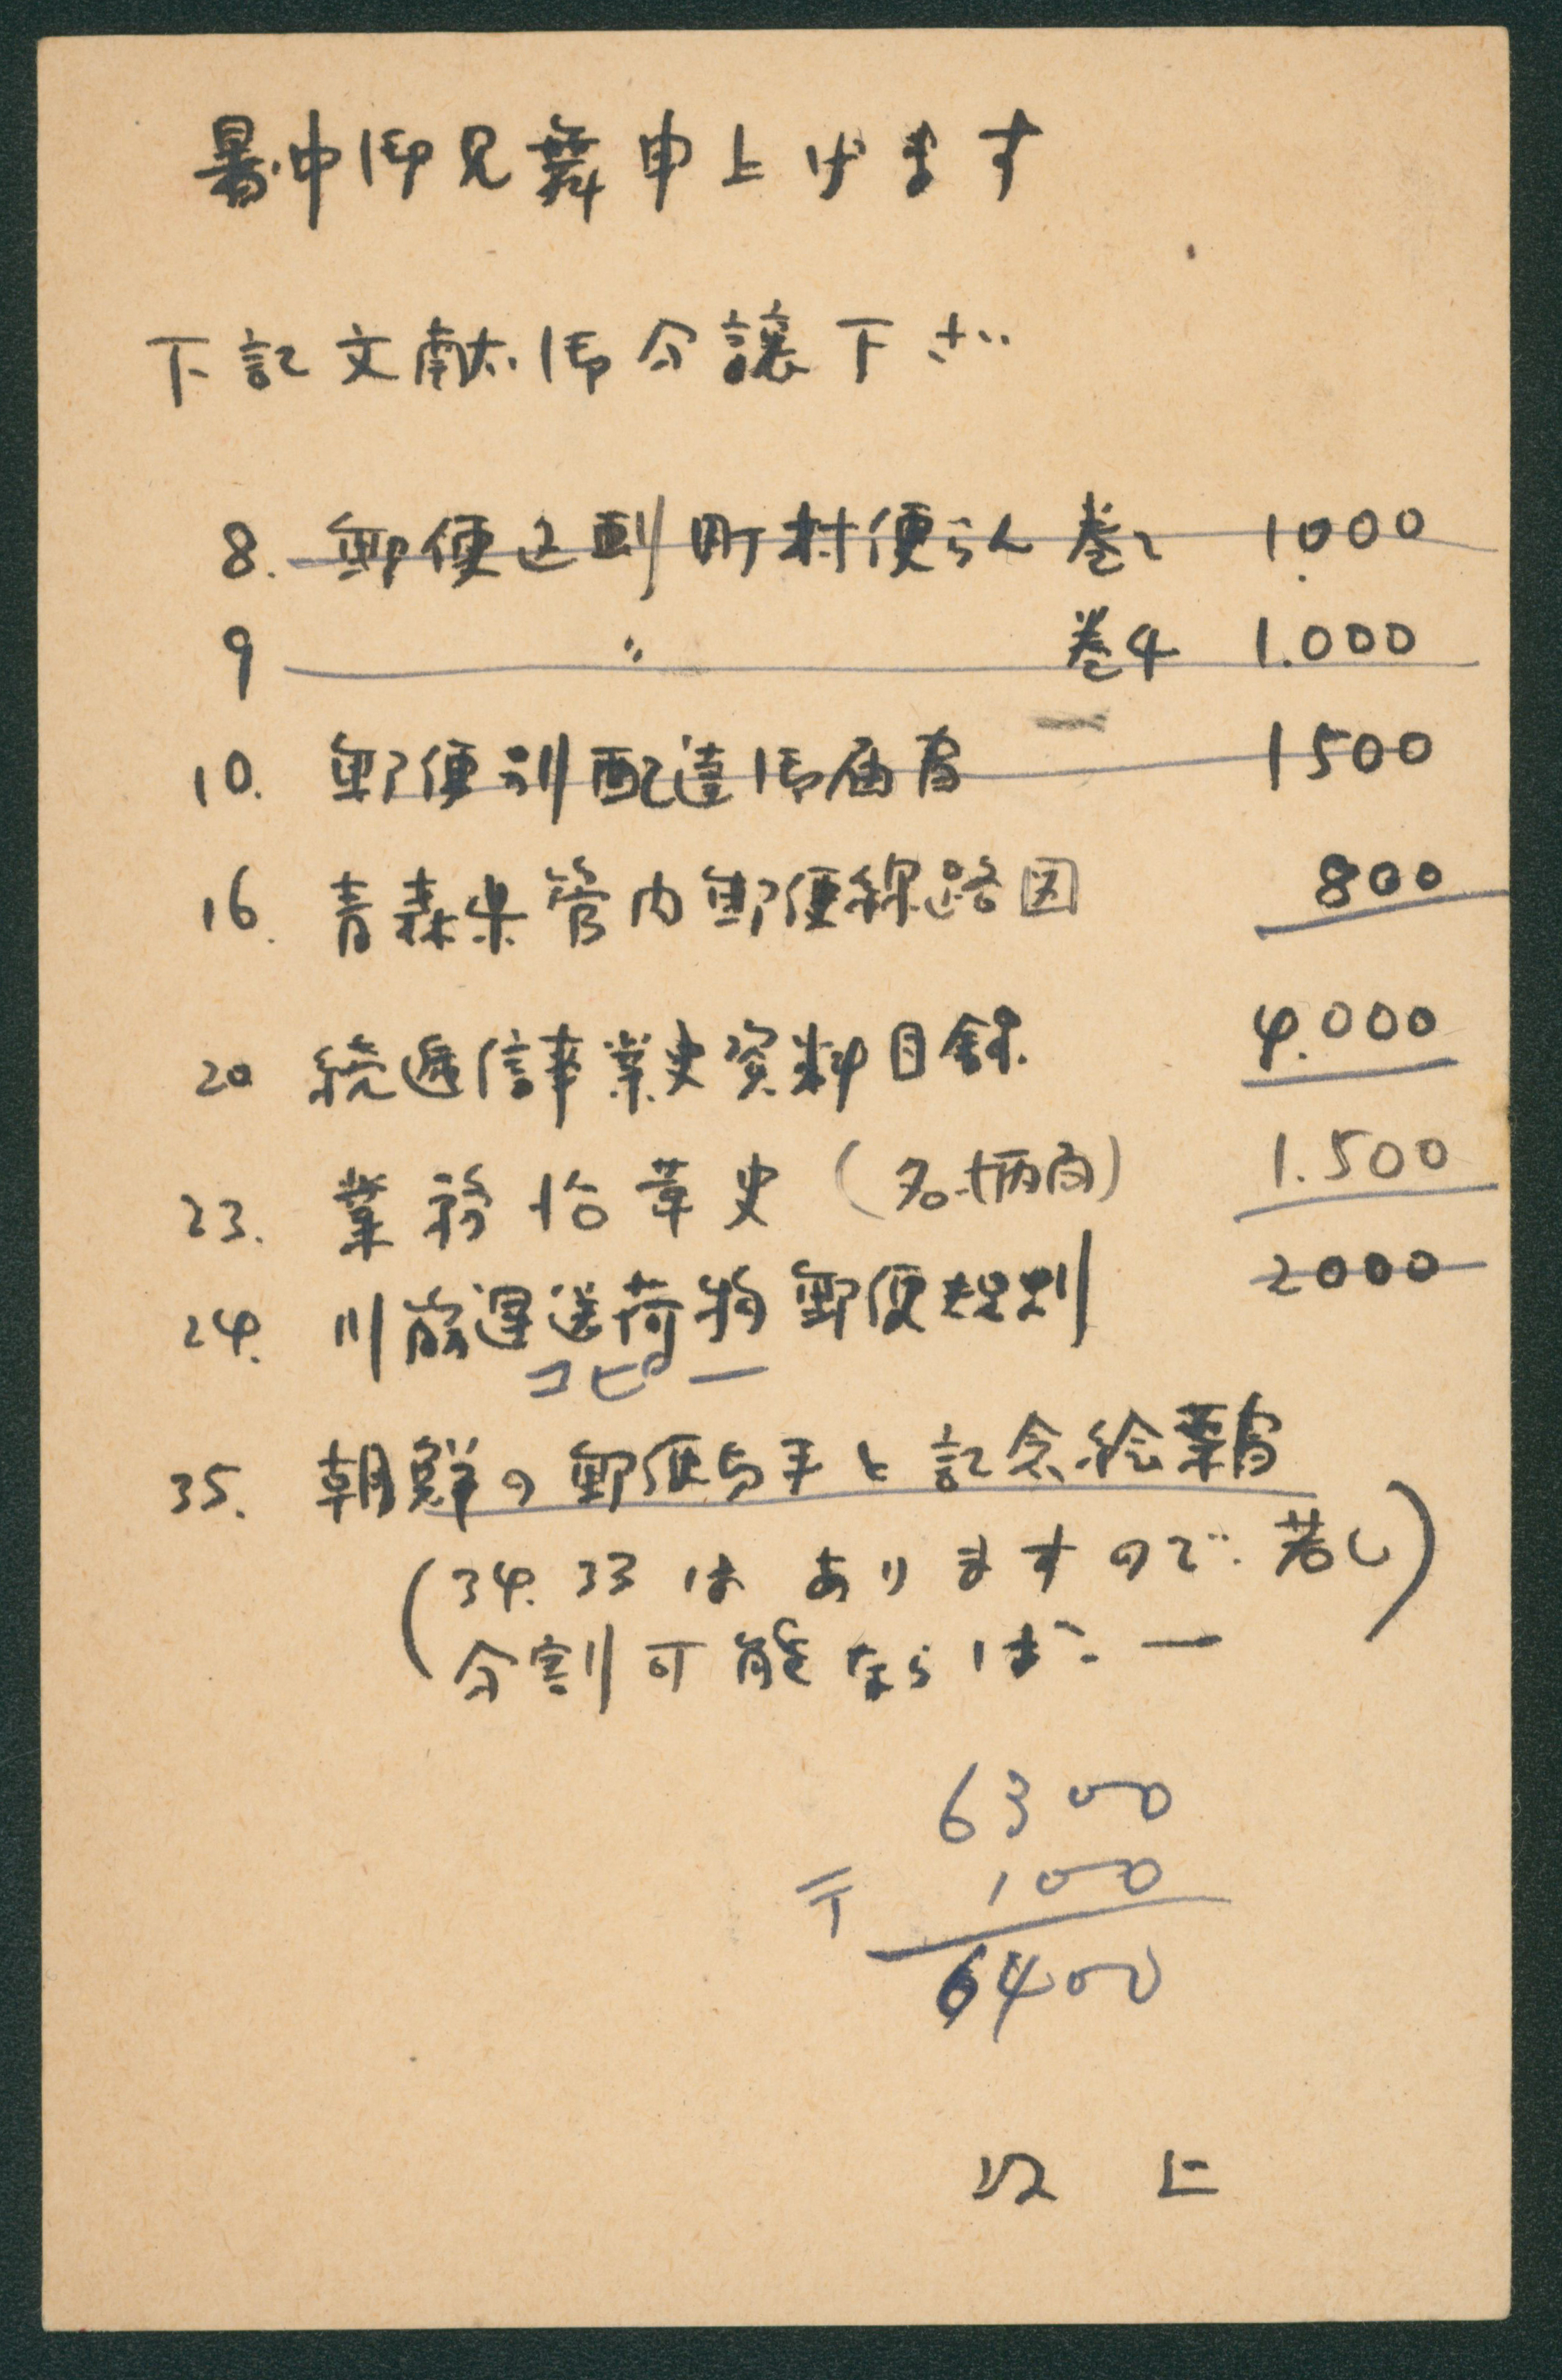 暑中御見舞申上げます
下記文献御分譲下さい
8. 郵便区画町村便らん 巻2 1.000
9 〃 巻4 1.000
10. 郵便別配達御届書 1500
16. 青森県管内郵便線路図 800
20 続逓信事業史資料目録 4.000
23. 業務沿革史(名古屋局) 1.500
24. 川崎運送荷物郵便規則 2000
コピー
35. 朝鮮の郵便切手と記念絵葉書
(34.33はありますので.若し
分割可能ならば.ー)
6300
〒 100
6400
以上